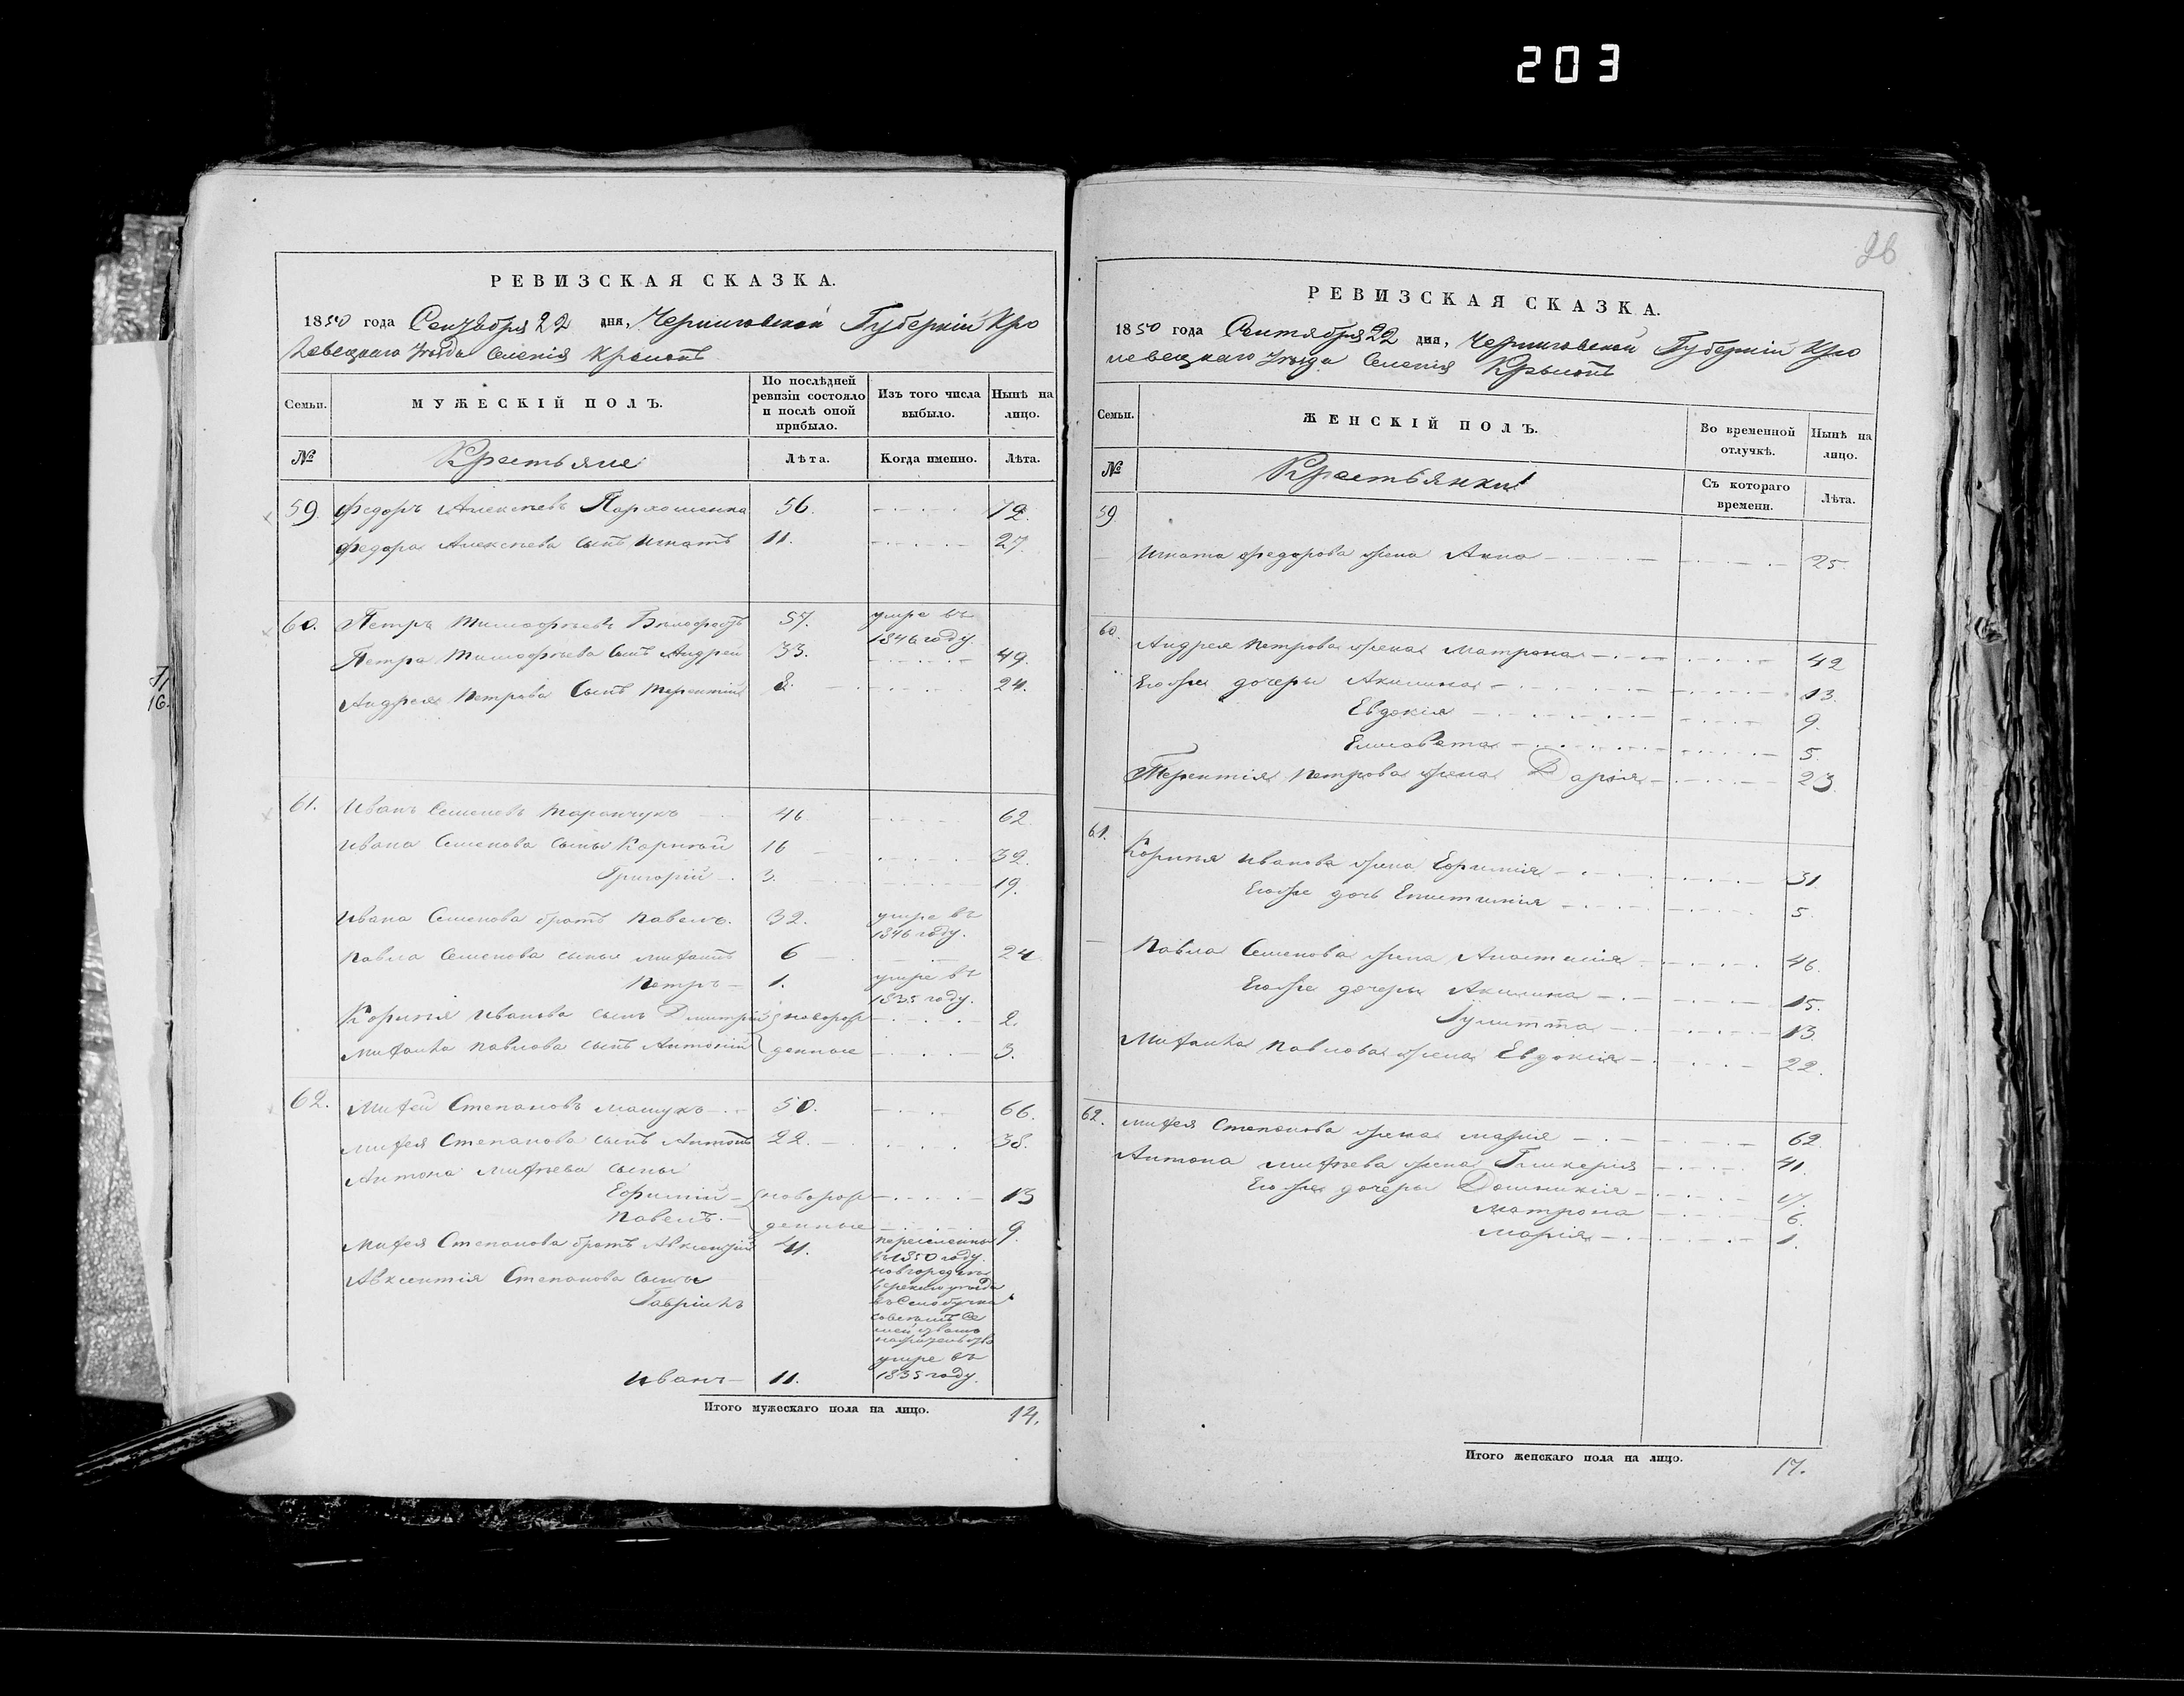 203
РЕВИЗСКАЯ СКАЗКА.
1850 года Сентября 22 дня, Черниговской Губерніи Кро
левецкаго Уезда Селенія
Семьи. МУЖЕСКІЙ ПОЛЪ. По послѣдней ревизіи состояло и послѣ оной прибыло. Изъ того числа выбыло. Нынѣ на лицо.
№ Крестьяне Лѣта. Когда именно. Лѣта.
59. Федоръ Алексеевъ Пархоменка 56. 72.
Федора Алексеева сынъ Игнатъ 11. 27.
60. Петръ Тимофеевъ 57. умре въ
1846 году
Петра Тимофеева сынъ Андрей 33. 49.
Андрея Петрова сынъ Терентій 8. 24.
61. Иванъ Семеновъ Таранчукъ 46 62.
Ивана Семенова сыны Корней 16 32.
Григорій 3. 19.
Ивана Семенова братъ Павелъ. 32. умре въ
1846 году.
Павла Семенова сынъ 6 24
Петръ 1. умре въ
1835 году.
Корнея Иванова сынъ Дмитрій новорож 2.
Павлова сынъ Антоній денные 3.
62. Степановъ 50. 66.
Степанова сынъ Антонъ 22. 38.
Антона сыны
Ефимій новорож 13
Павелъ. денные 9.
Степанова братъ Авксентій 41.
въ 1850 году.
Авксентія Степанова сыны
Гавріилъ
умре въ
Иванъ 11. 1835 году.
Итого мужескаго пола на лицо. 14.
26
РЕВИЗСКАЯ СКАЗКА.
1850 года Сентября 22 дня, Черниговской Губерніи Кро
левецкаго Уезда Селенія
Семьи. ЖЕНСКІЙ ПОЛЪ. Во временной отлучкѣ. Нынѣ на лицо.
№ Крестьянки Съ котораго времени. Лѣта.
59
Игната Федорова жена Анна 25.
60. Андрея Петрова жена Матрона 42
Его же дочери Акилина 13.
Евдокія 9.
Елисавета 5.
Терентія Петрова жена Дарія 23.
61. Корнея Иванова жена Ефимія 31.
Его же дочь 5.
Павла Семенова жена Анастасія 46.
Его же дочери Акилина 15.
Іулитта 13.
Павлова жена Евдокія 22.
62. Степанова жена Марія 62.
Антона жена Гликерія 41.
Его же дочери Домникія 17.
Матрона 6.
Марія 1.
Итого женскаго пола на лицо. 17.